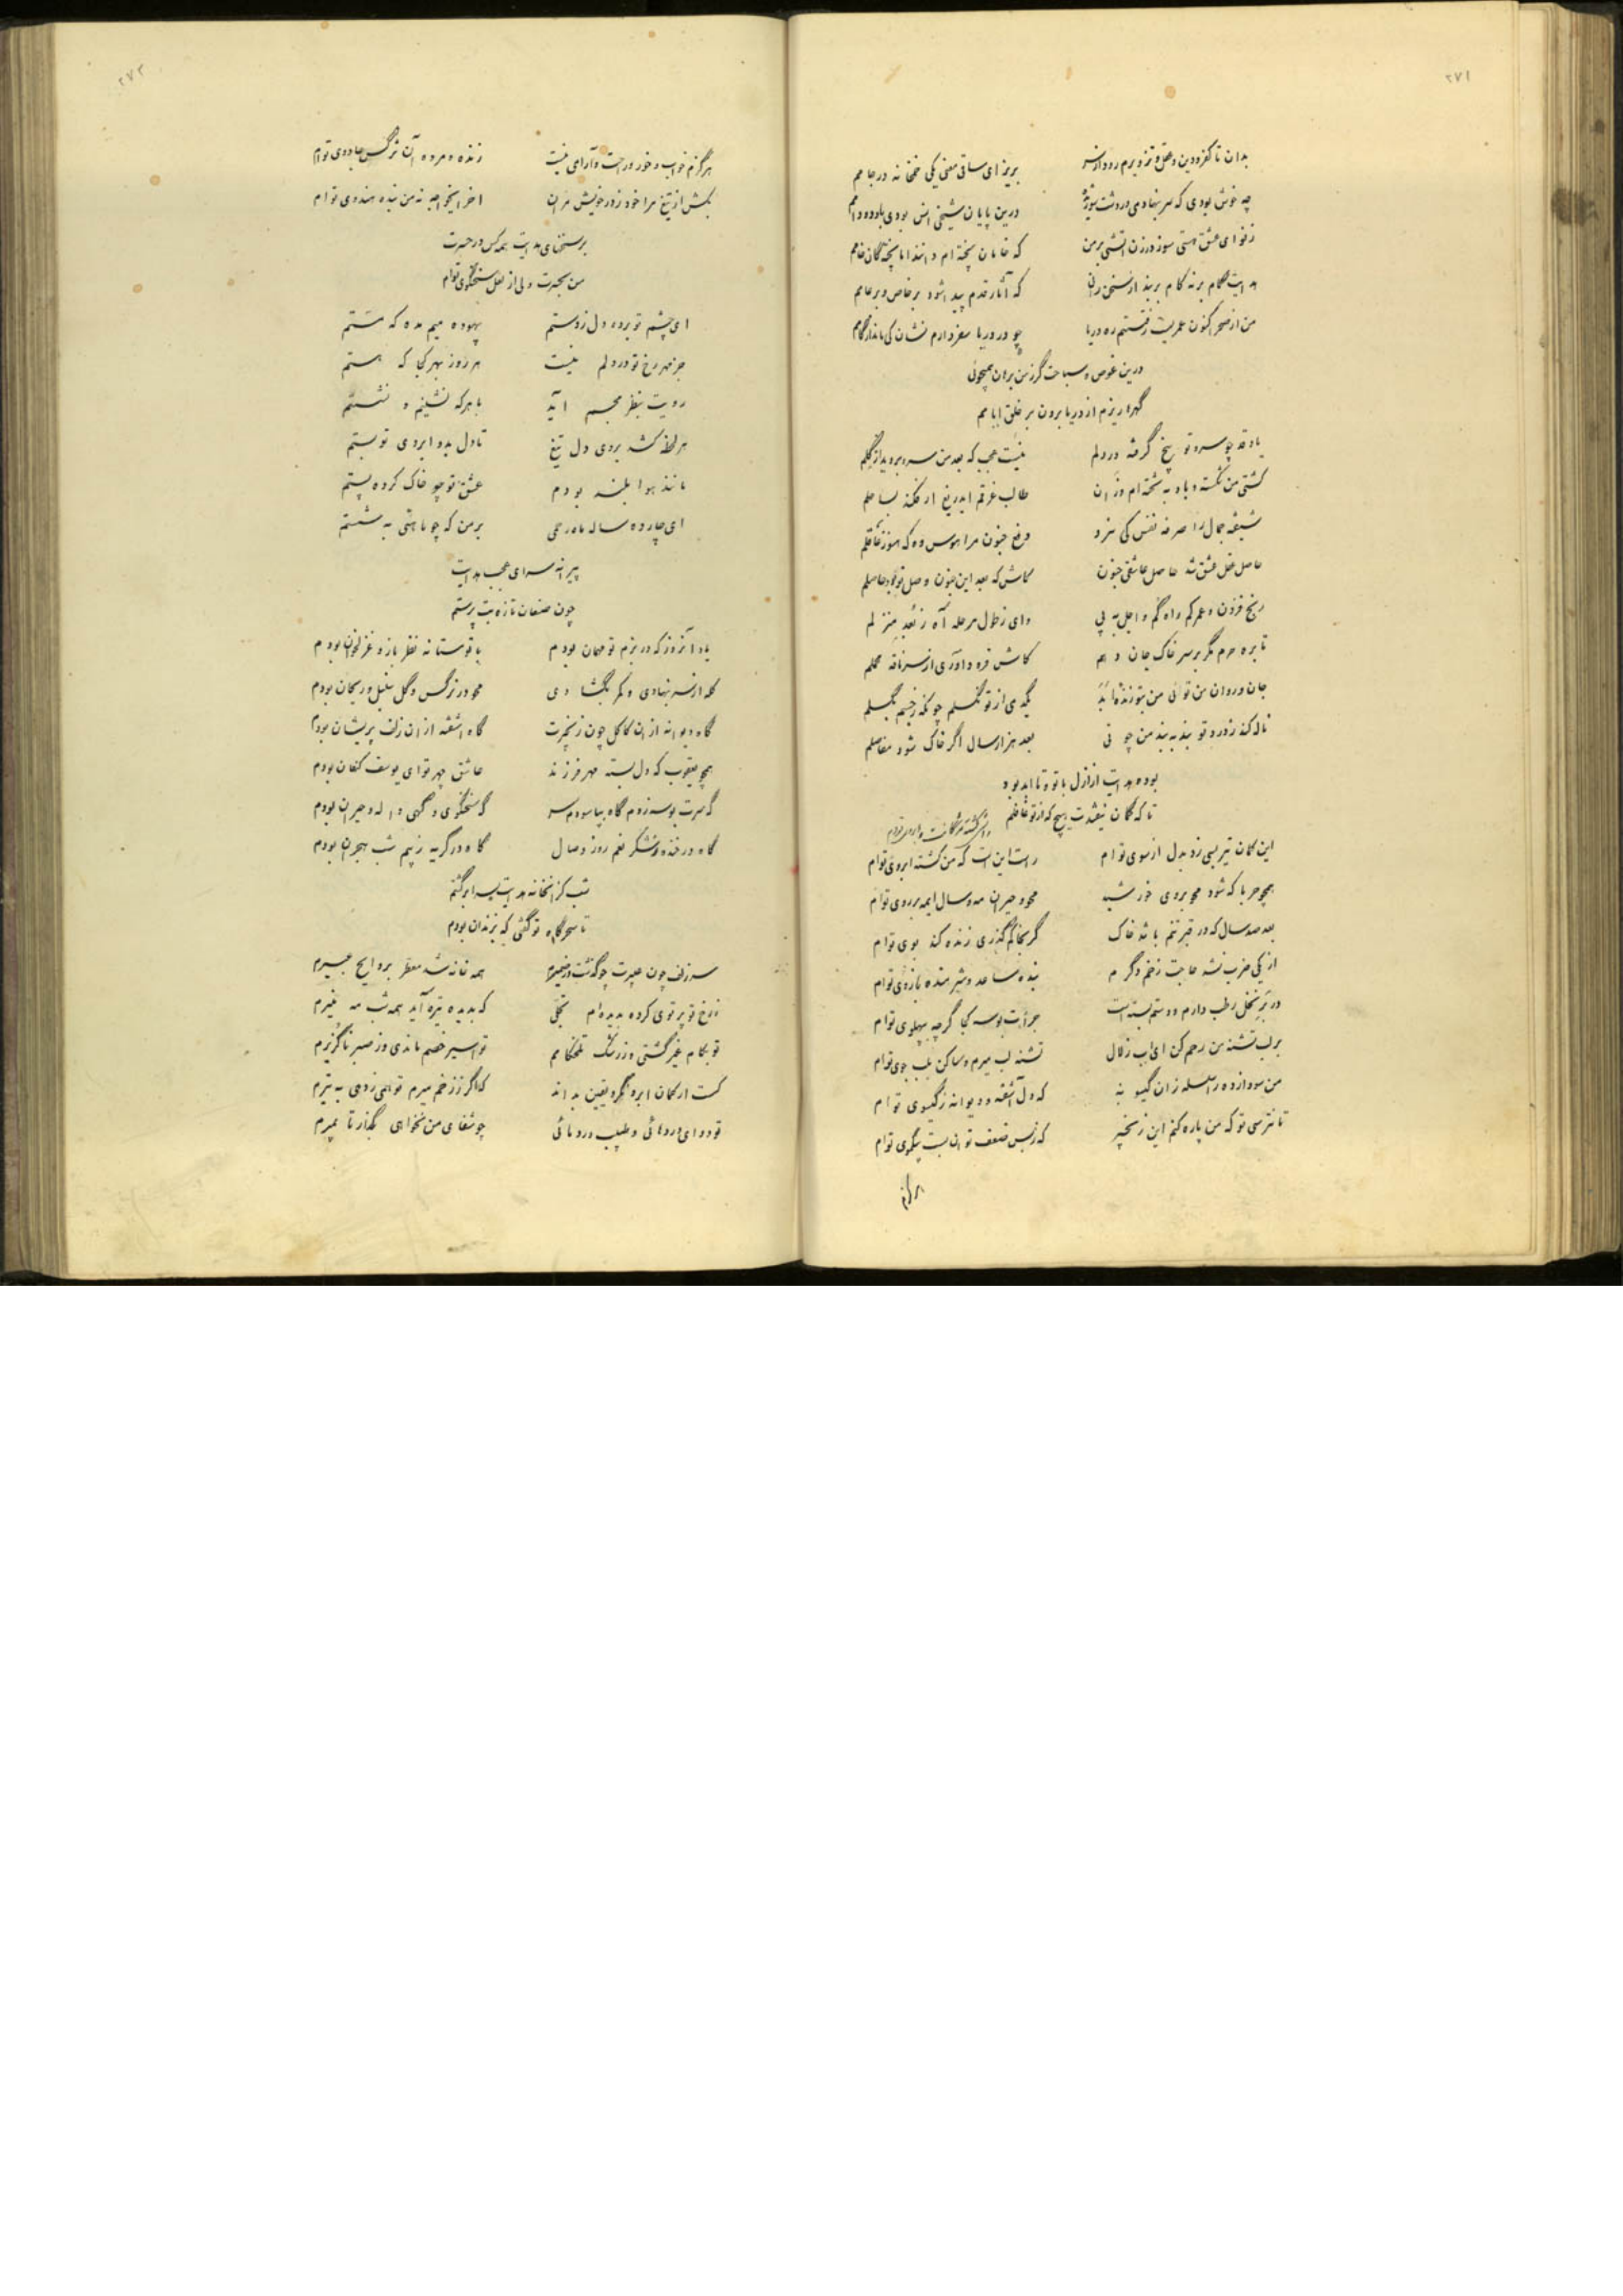 ۲۷۱
بدان تا کفر و دین و عقل و تزویرم رود از سر بریز ای ساقی معنی یکی خمخانه در جامم
چه خوش بودی که سر بنهادمی در دشت درین پایان شیخی انس بودی با دد و دامم
ز نو ای عشق هستی سوز در زن آتشی بر من که خامان پخته‌ام دانند اما پختگان خامم
هدایت گام بر نه کام بر بند از سخن رانی که آثار قدم پیدا شود بر خاص و بر عامم
من از صحرا کنون عمریست رفتستم ره دریا چو در دریا سفر دارم نشان کی ماند از گامم
درین غوص و سباحت گر ز من بر دان همیجوئی
گهر ریزم از دریا برون بر خلق ایامم
یاد قد چو سرو تو بیخ گرفته در دلم نیست عجب که بعد من سرو بروید از گلم
کشتی من شکسته و باد به تخته‌ام وزان طالب غرقم ایدریغ ار فکند بساحلم
شیفته جمال را صرفه نفس کی سزد ورغ جنون مرا هوس وه که هنوز عاقلم
حاصل عقل عشق شد حاصل عاشقی جنون کاش که بعد این جنون وصل تو بود حاصلم
رنج فزون و عمر کم راه گم و اجل به پی وای ز طول مرحله آه ز بُعد منزلم
تا بره حرم مگر بر سر خاک جان دهم کاش فرود آوری از سر ناقه محملم
جان و روان من توئی من بتو زنده‌ام ابد یکدمی از تو نگسلم چونکه ز جسم بگسلم
ناله کند ز درد تو بند به بند من چو نی بعد هزار سال اگر خاک شود مفاصلم
بوده هدایت از ازل با تو و تا ابد بود
تا که گمان نیفتدت هیچ که از تو غافلم
این کمان تیر بسی زد بدل از سوی توام راست این است که من کشته ابروی توام
همچو حربا که شود محو بروی خورشید محو و حیران مه و سال ایمه بر روی توام
بعد صد سال که در قبر تنم باشد خاک گر بخاکم گذری زنده کند بوی توام
از یکی ضرب نشد حاجت زخم دگرم بنده ساعد و شرمنده بازوی توام
در بَرِ نخل رطب دارم و دستم بسته است جرأت بوسه کجا گرچه بپهلوی توام
بر لب تشنه من رحم کن ای آب زلال تشنه لب میرم و ساکن بلب جوی توام
من سودازده را سلسله زان گیسو نه که دل آشفته و دیوانه ز گیسوی توام
تا نترسی تو که من پاره کنم این زنجیر که ز بس ضعف توان بست بیکموی توام
هرگزم
۲۷۲
هرگزم خواب و خور و راحت و آرامی نیست زنده و مرده آن نرگس جادوی توام
بکش از تیغ مرا خود ز در خویش مران آخر ایخواجه نه من بنده هندوی توام
بر سخنهای هدایت همه کس در حیرت
من بحیرت ولی از لعل سخنگوی توام
ای چشم تو برده دل ز دستم بیهوده میم مده که مستم
جز مهر رخ تو در دلم نیست هر روز بهر کجا که هستم
رویت بنظر مجسم آید با هر که نشینم و نشستم
هر لحظه کشد بروی دل تیغ تا دل بدو ابروی تو بستم
مانند هوا بلند بودم عشق تو چو خاک کرده پستم
ای چارده ساله ماه رحمی بر من که چو ماهئی به شستم
پیرانه سرای عجب هدایت
چون صنعان تازه بت پرستم
یاد آنروز که در بزم تو مهمان بودم با تو مستانه نظرباز و غزلخوان بودم
کله از سر بنهادی و کمر بگشادی محو در نرگس و گل سنبل و ریحان بودم
گاه دیوانه از ان کاکل چون زنجیرت گاه آشفته از ان زلف پریشان بودم
همچو یعقوب که دل بسته مهر فرزند عاشق چهر تو ای یوسف کنعان بودم
گه سرت بوسه زدم گاه بپا سودم سر گه سخنگوی و گهی واله و حیران بودم
گاه در خنده و شکر نعم روز وصال گاه در گریه ز بیم شب هجران بودم
شب کز انخانه هدایت بسرا برگشتم
تا سحرگاه تو گفتی که بزندان بودم
سر زلف چون عبیرت چو گذشت در ضمیرم همه خانه شد معطر بروایح عبیرم
ز رخ تو پرتوی کرده بدیده‌ام تجلی که بدیده تیره آید همه شب مه منیرم
تو بکام غیر گشتی و ز رشگ تلخکامم تو اسیر خصم ماندی و ز صبر ناگزیرم
کست ار کمان ابرو نگرد یقین بداند که اگر ز زخم میرم تو همی زدی به تیرم
تو دوای دردهائی و طبیب دردمائی چو شفای من نخواهی بگذار تا بمیرم